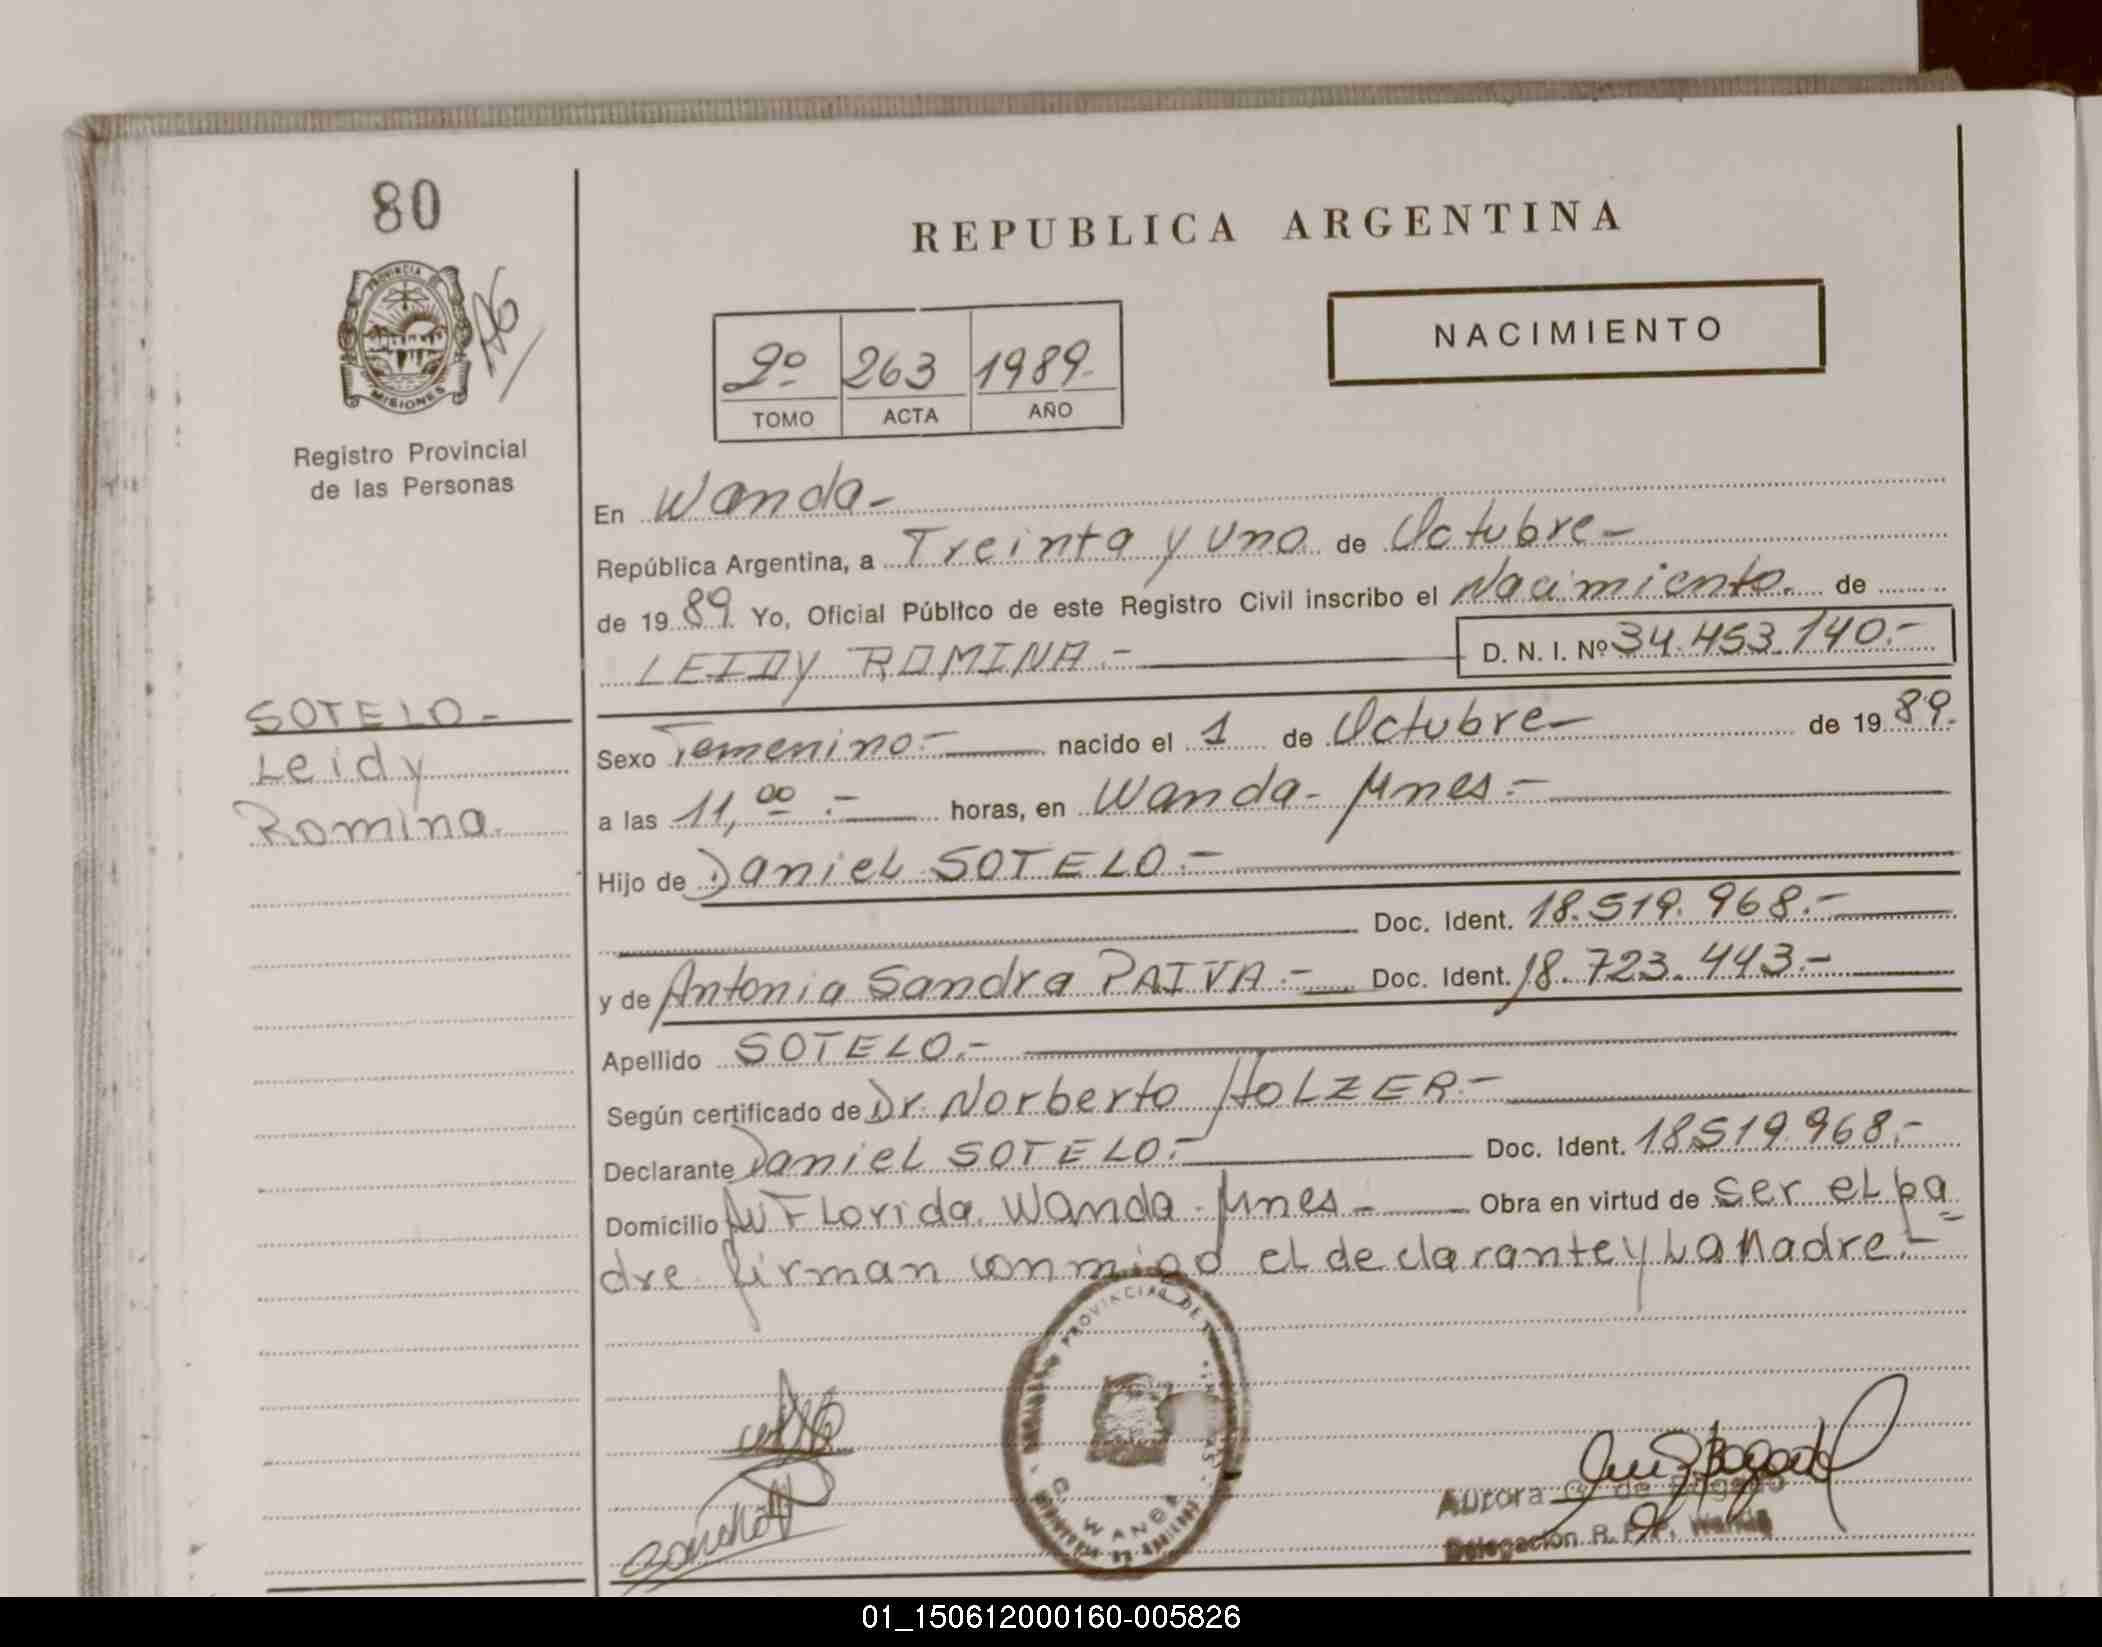 80
REPUBLICA ARGENTINA
PROVINCIA DE
MISIONES
NACIMIENTO
2º 263 1989.-
TOMO ACTA AÑO
Registro Provincial
de las Personas
En Wanda-
República Argentina, a Treinta y uno de Octubre-
de 19 89. Yo, Oficial Público de este Registro Civil inscribo el Nacimiento. de
LEIDY ROMINA.- D. N. I. Nº 34.453.140.-
SOTELO-
Leidy
Romina.
Sexo Femenino.- nacido el 1 de Octubre- de 19 89.-
a las 11,00.- horas, en Wanda- Mnes.-
Hijo de Daniel SOTELO.-
Doc. Ident. 18.519.968.-
y de Antonia Sandra PAIVA.- Doc. Ident. 18.723.443.-
Apellido SOTELO.-
Según certificado de Dr. Norberto HOLZER.-
Declarante Daniel SOTELO.- Doc. Ident. 18519968.-
Domicilio Av Florida. Wanda. Mnes- Obra en virtud de ser el pa
dre firman conmigo el declarante y La Madre.-
PROVINCIAL DE
WANDA
Aurora G. de Bogado
Delegación R. P. P. Wanda
01_150612000160-005826